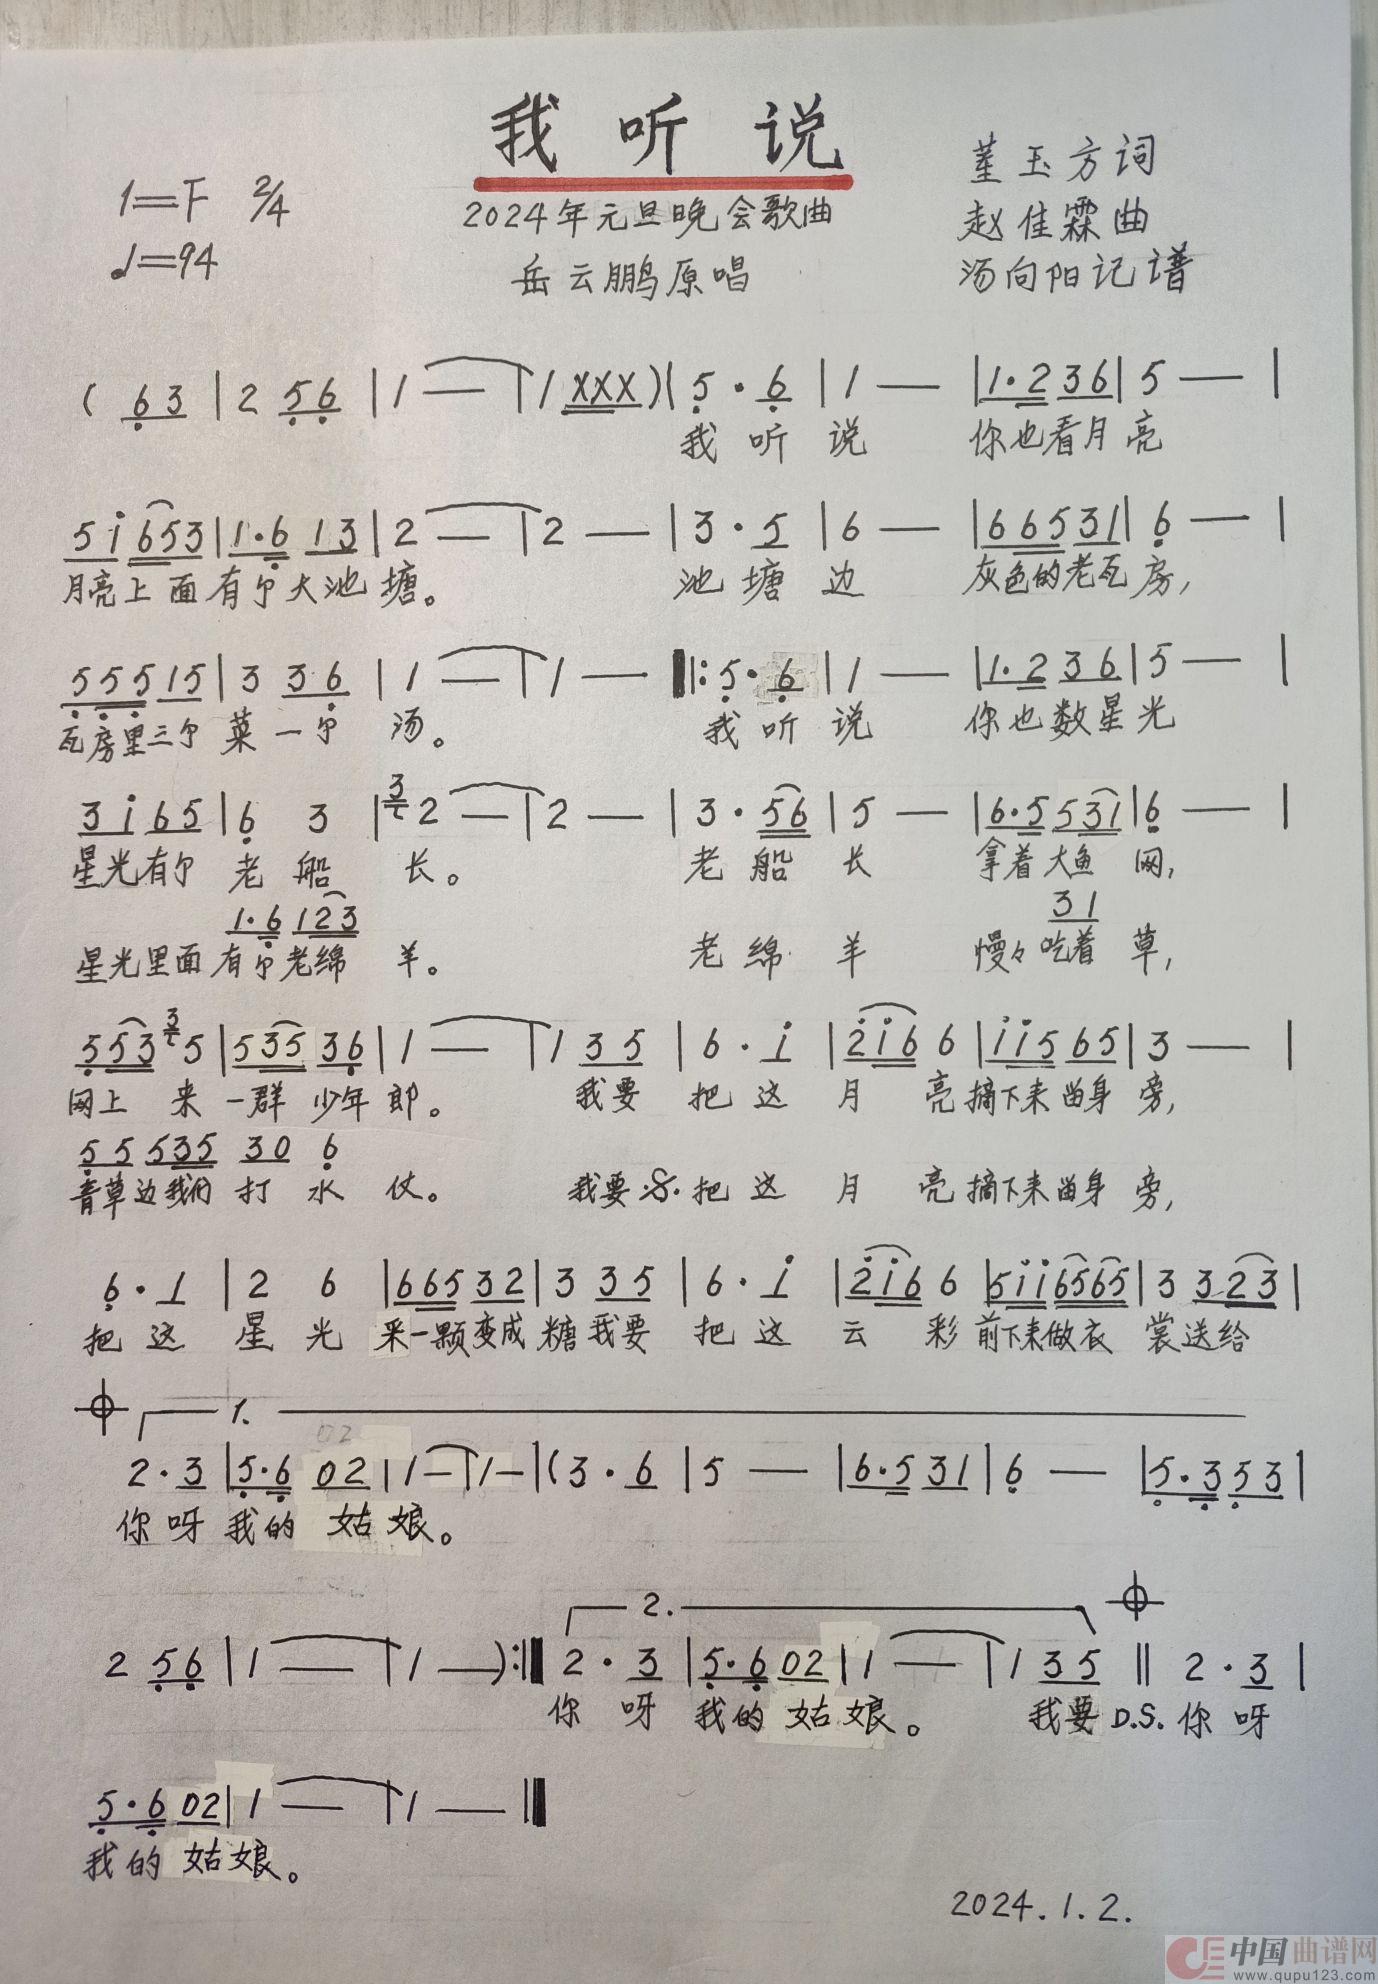 我听说
2024年元旦晚会歌曲
岳云鹏原唱
1=F 2/4
♩=94
董玉方词
赵佳霖曲
汤向阳记谱
( 63 | 2 56 | 1 — | 1 XXX )( 5 · 6 | 1 — | 1·2 36 | 5 — |
我听说 你也看月亮
5i 653 | 1·6 13 | 2 — | 2 — | 3 · 5 | 6 — | 665 31 | 6 — |
月亮上面有个大池塘。 池塘边 灰色的老瓦房,
555 15 | 3 36 | 1 — | 1 — ‖: 5 · 6 | 1 — | 1·2 36 | 5 — |
瓦房里三个菜一个汤。 我听说 你也数星光
3i 65 | 6 3 | 3 2 — | 2 — | 3 · 56 | 5 — | 6·5 531 | 6 — |
星光有个老船长。 老船长 拿着大鱼网,
1·6 123 31
星光里面有个老绵羊。 老绵羊 慢々吃着草,
553 3 5 | 535 36 | 1 — | 1 35 | 6 · i | 2i6 6 | ii5 65 | 3 — |
网上来一群少年郎。 我要把这月亮摘下来留身旁,
55 535 30 6
青草边我们打水仗。 我要 𝄋 把这月亮摘下来留身旁,
6 · 1 | 2 6 | 665 32 | 3 35 | 6 · i | 2i6 6 | 5ii 6565 | 3 323 |
把这星光采一颗变成糖我要把这云彩剪下来做衣裳送给
𝄌 1.
2·3 | 5·6 02 | 1 — | 1 — | ( 3 · 6 | 5 — | 6·5 31 | 6 — | 5·3 53 |
你呀我的姑娘。
2. 𝄌
2 56 | 1 — | 1 — ) :‖ 2 · 3 | 5·6 02 | 1 — | 1 35 ‖ 2 · 3 |
你呀我的姑娘。 我要 D.S. 你呀
5·6 02 | 1 — | 1 — ‖
我的姑娘。
2024.1.2.
中国曲谱网
www.qupu123.com